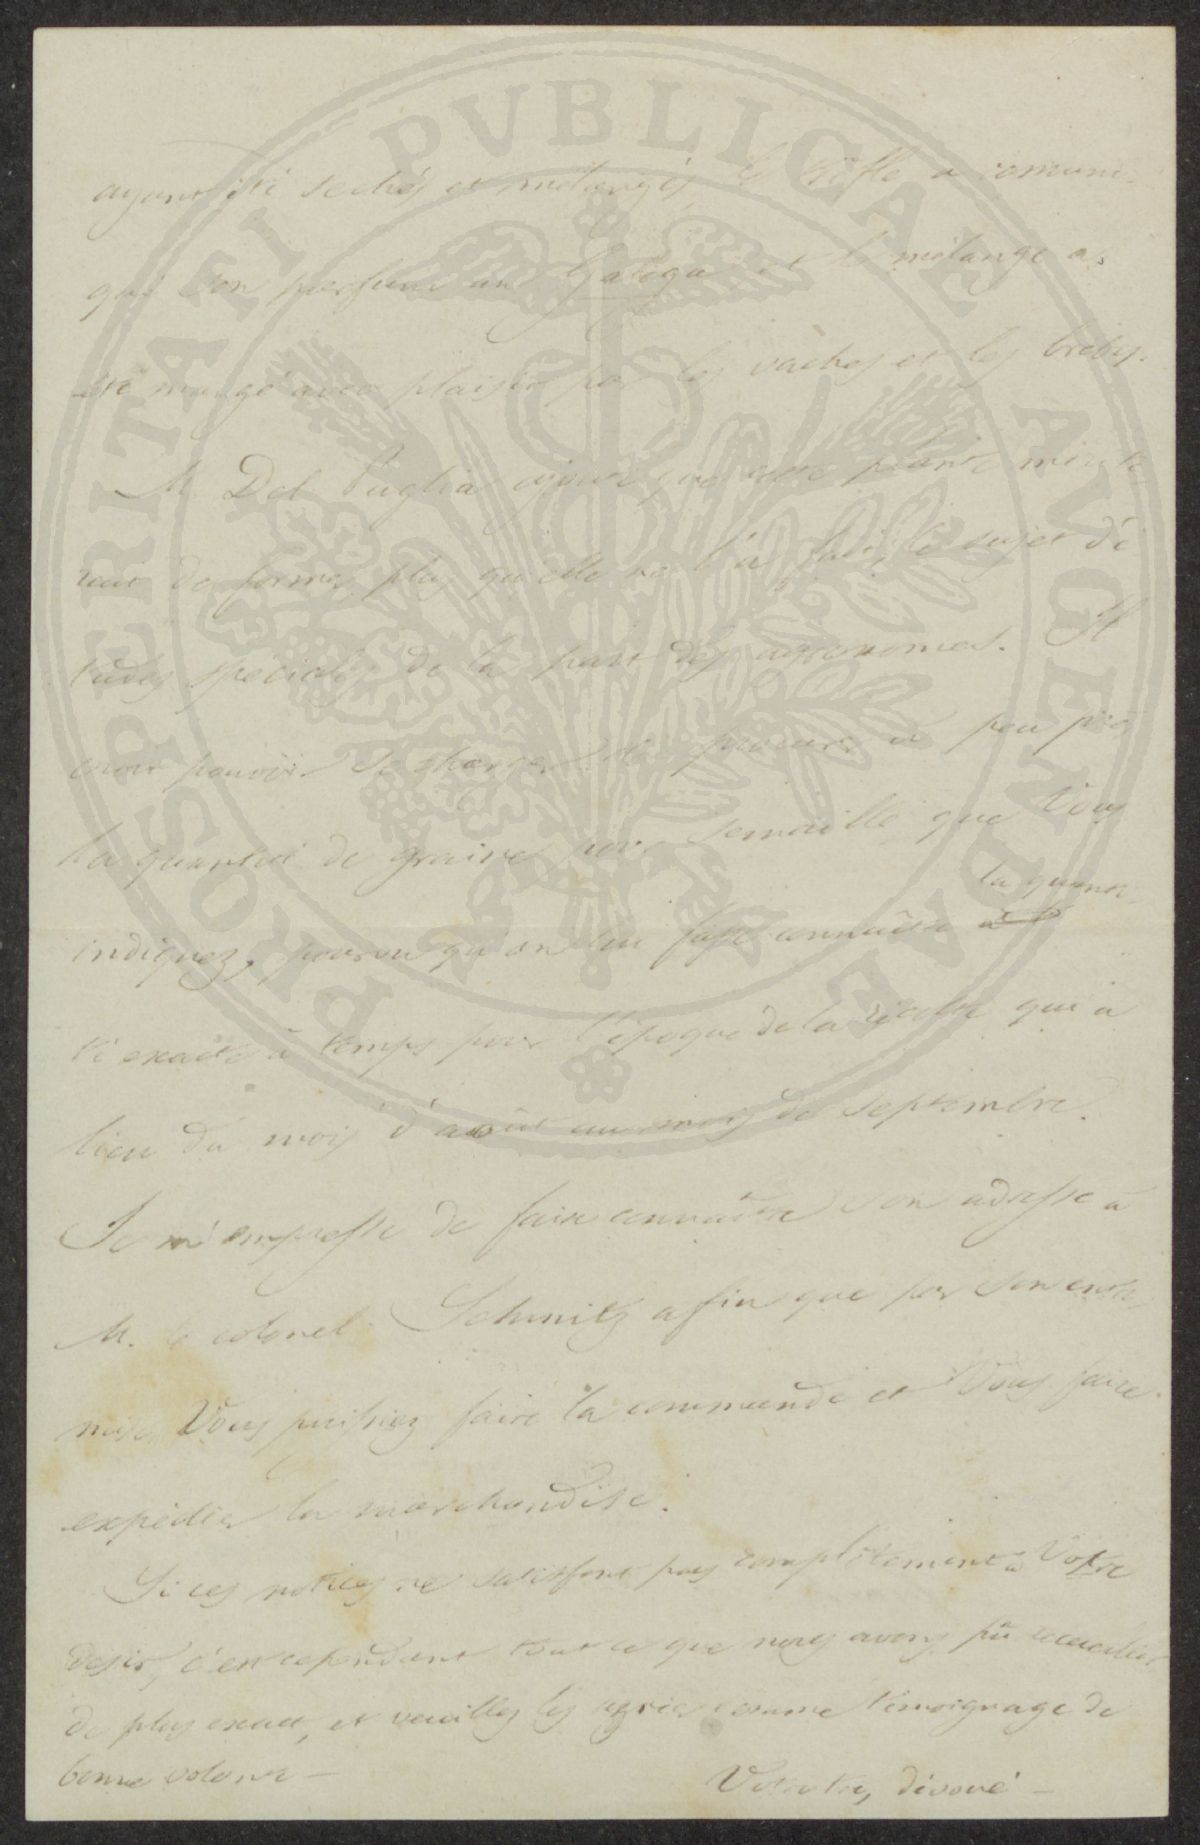 PROSPERITATI PVBLICAE AVGENDAE
ayant été sechés et mélangés, le trèfle a comuni-
qué son parfum au Galega et le mélange a
été mangé avec plaisir par les vaches et les brebis.
M. Del Puglia ajoute que cette plante mérite-
rait de former, plus qu'elle ne l'a fait, le sujet d'é
tudes spéciales de la part des agronomes. Il
croit pouvoir se charger de procurer à peu près
la quantité de graines pour semaille que Vous
indiquez, pourvu qu'on lui fasse connaître la quanti-
té exacte à temps pour l'époque de la récolte qui a
lieu du mois d'août au mois de septembre.
Je m'empresse de faire connaître son adresse à
M. le colonel Schmitz afin que par son entre-
mise Vous puissiez faire la commande et Vous faire
expédier la marchandise.
Si ces notices ne satisfont pas complètement à Votre
desir, c'est cependant tout ce que nous avons pû recueillir
de plus exact, et veuillez les agréer comme témoignage de
bonne volonté —
Votre très dévoué —